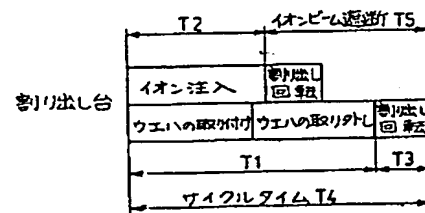 T2
イオンビーム遮断 T5
イオン注入
割り出し
回転
割り出し台
ウエハの取り付け
ウエハの取り外し
割り出し
回転
T1
T3
サイクルタイム T4